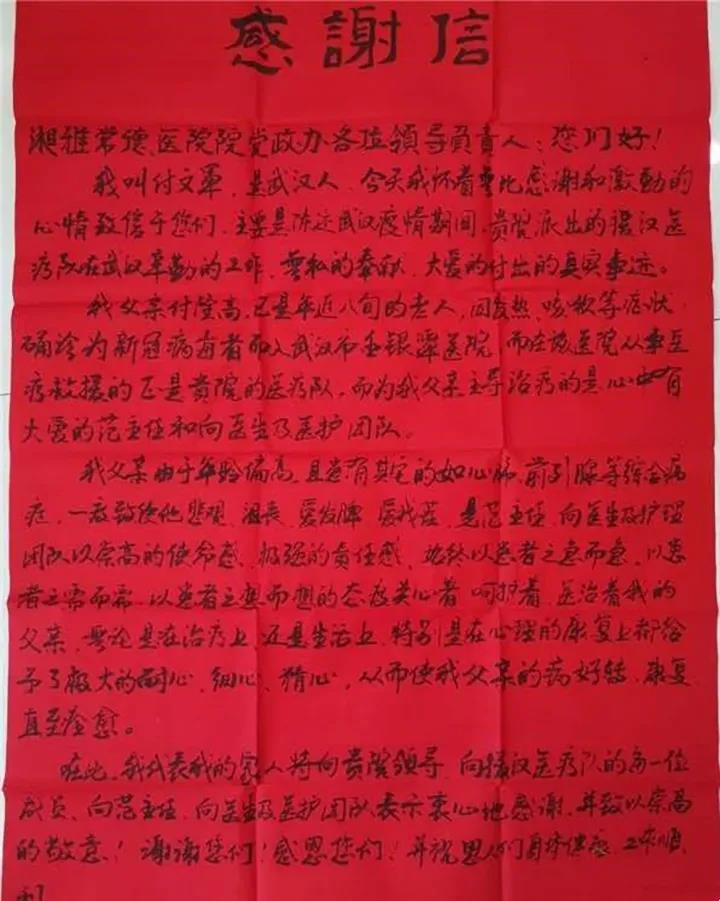 感謝信
湘雅常德医院院党政办各位領导負責人：您们好！
我叫付文軍，是武汉人，今天我怀着無比感謝和激動的
心情致信于您们，主要是陈述武汉疫情期间，贵院派出的援汉医
疗队在武汉辛勤的工作、無私的奉献、大爱的付出的真实事迹。
我父亲付 高，已是年近八旬的老人，因发热、咳嗽等症状
确诊为新冠病毒者而入武汉市金银潭医院，而在該医院从事医
疗救援的正是貴院的医疗队，而为我父亲主导治疗的是心中有
大爱的范主任和向医生及医护团队。
我父亲由于年龄偏高，且患有其它的如心肺、前列腺等综合病
症，一度致使他悲观、沮丧、爱发脾 ，是范主任、向医生及护理
团队以崇高的使命感、极强的责任感、始终以患者之急而急，以患
者之需而需，以患者之想而想的态度关心着、呵护着、医治着我的
父亲，無论是在治疗上、还是生活上，特别是在心理的康复上都给
予了极大的耐心、细心、精心，从而使我父亲的病好转、康复
直至痊愈。
在此，我代表我的家人特向贵院领导、向援汉医疗队的每一位
成员、向范主任、向医生及医护团队表示衷心地感谢，并致以崇高
的敬意！谢谢您们！感恩您们！并祝恩人们身体健康、工作順
利